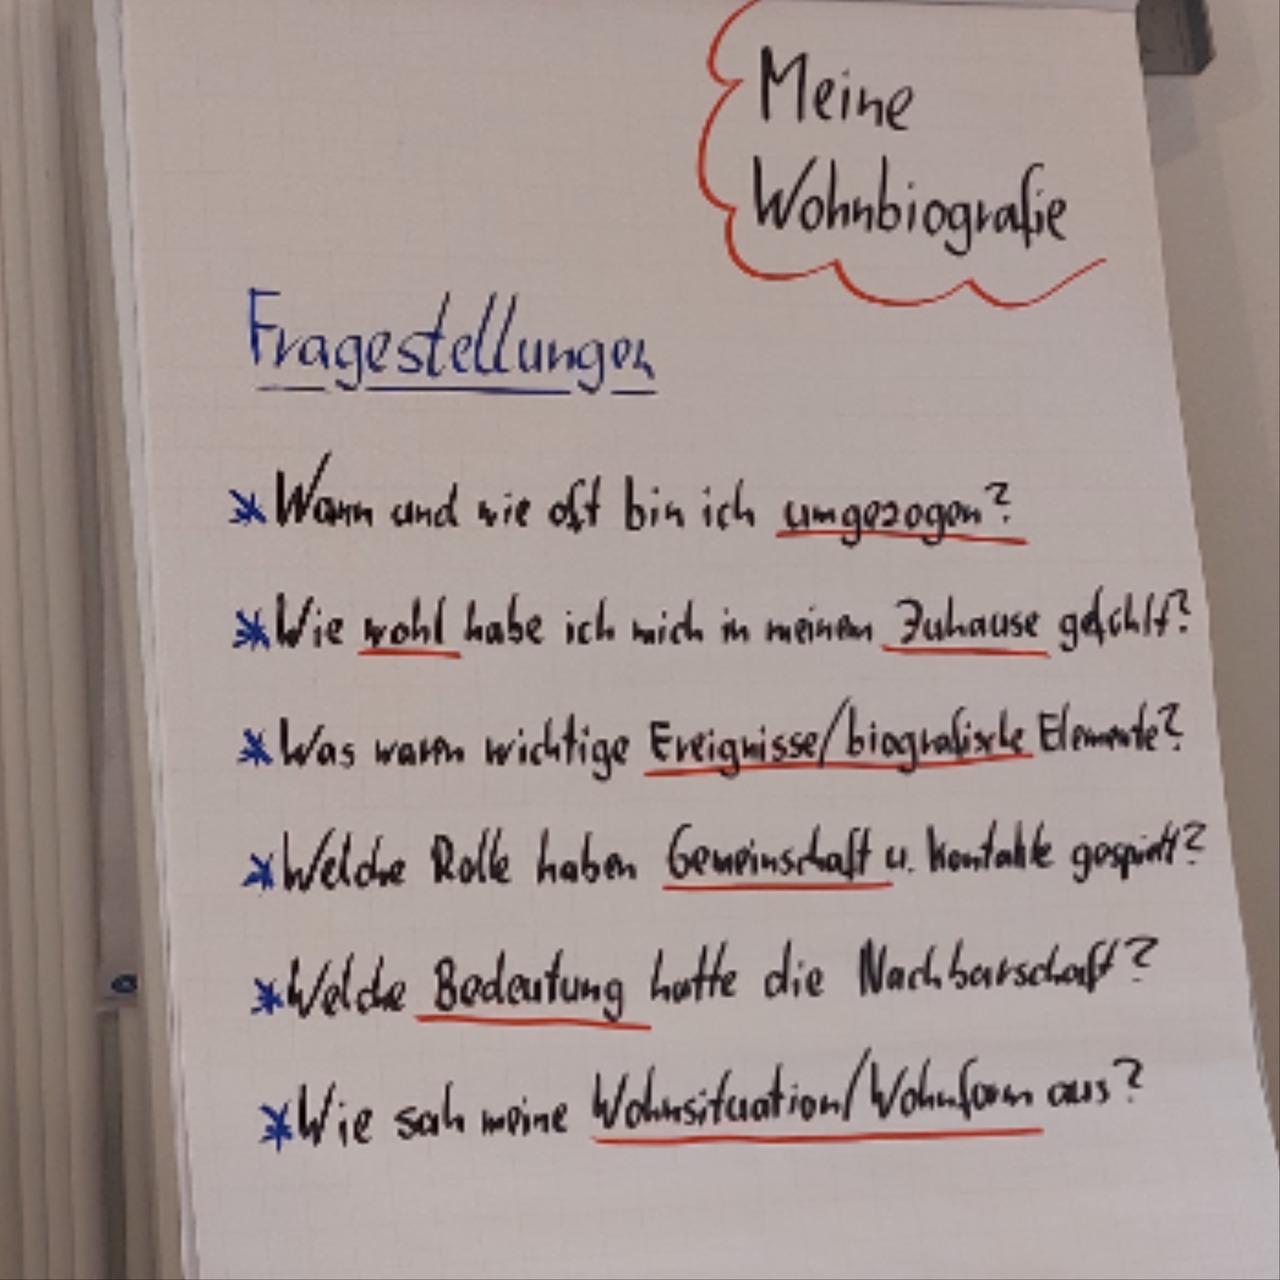 Meine
Wohnbiografie
Fragestellungen
* Wann und wie oft bin ich umgezogen?
* Wie wohl habe ich mich in meinem Zuhause gefühlt?
* Was waren wichtige Ereignisse/biografische Elemente?
* Welche Rolle haben Gemeinschaft u. Kontakte gespielt?
* Welche Bedeutung hatte die Nachbarschaft?
* Wie sah meine Wohnsituation/Wohnform aus?